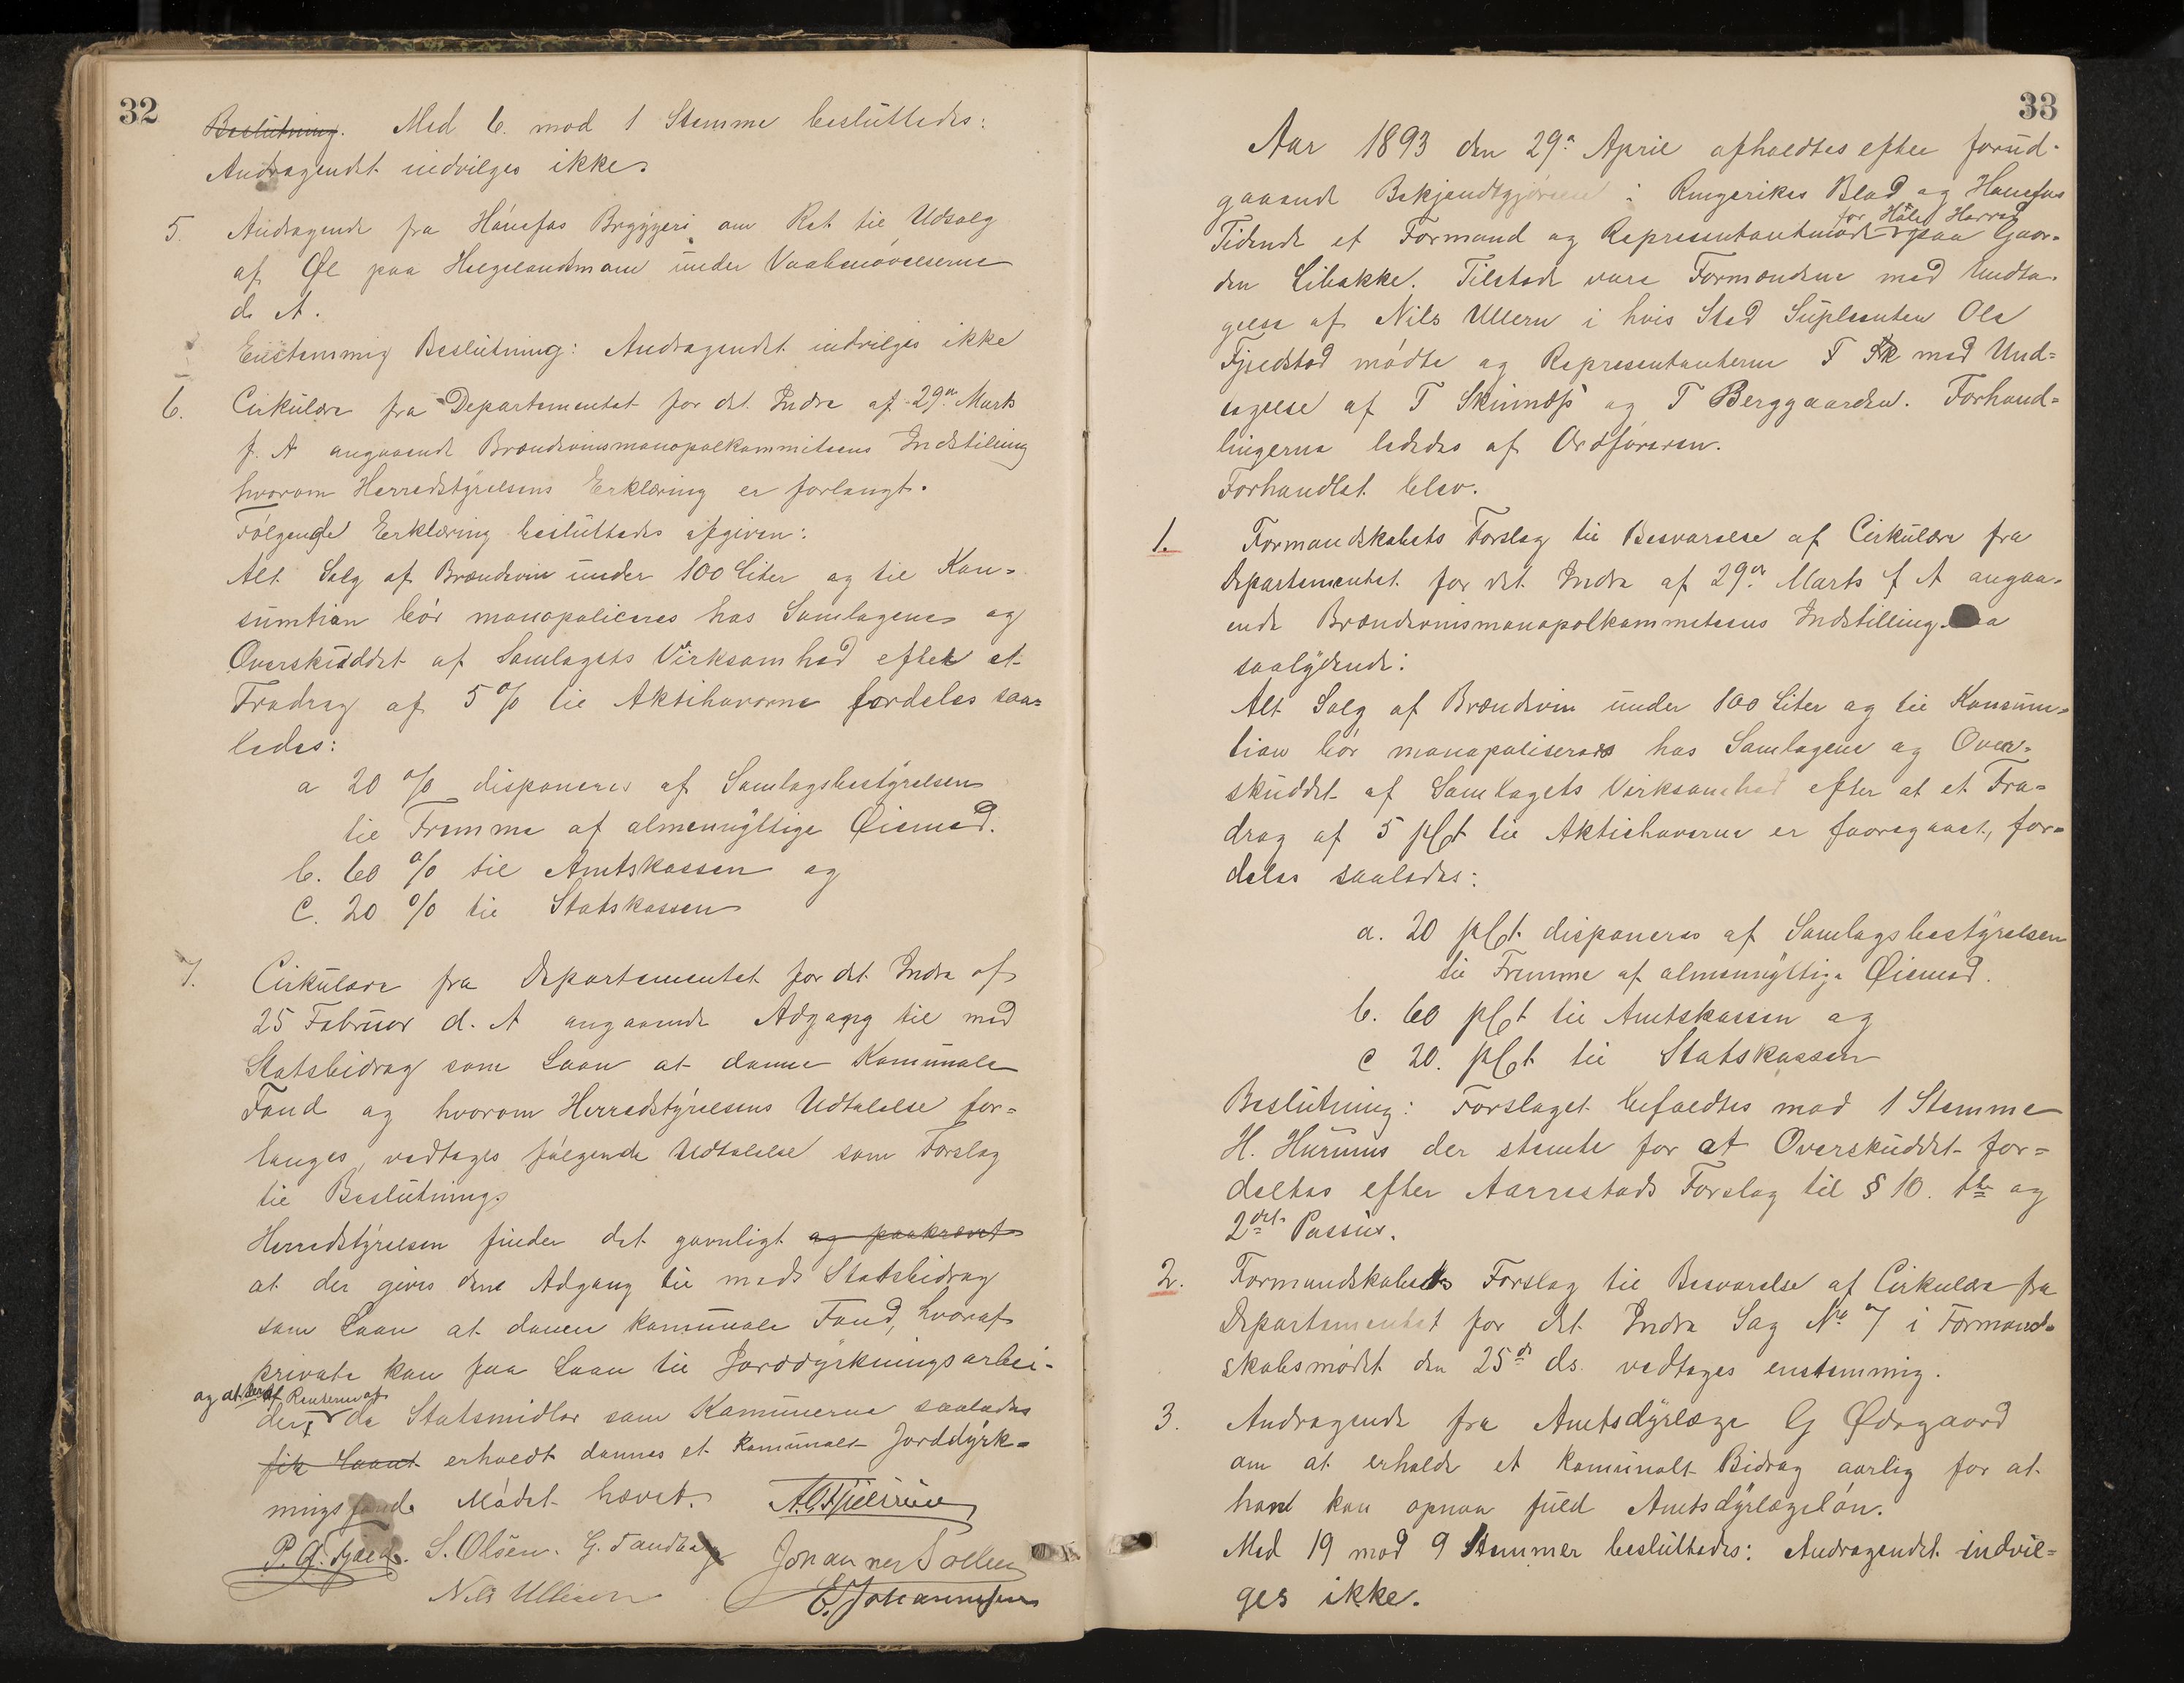 32
Beslutning. Med 6. mod 1 Stemme besluttedes:
Andragendet indvilges ikke.
5. Andragende fra Hønefos Bryggeri om Ret til Udsalg
af Øl paa Helgelandsmoen under Vaabenøvelserne
d. A.
Enstemmig Beslutning: Andragendet indvilges ikke
6. Cirkulære fra Departementet for det Indre af 29de Marts
f. A angaaende Brændevinsmonopolkommiteens Indstilling
hvorom Herredstyrelsens Erklæring er forlangt.
Følgende Erklæring besluttedes afgiven:
Alt Salg af Brændevin under 100 Liter og til Kon=
sumtion bør monopoliceres hos Samlagene og
Overskuddet af Samlagets Virksomhed efter et
Fradrag af 5 % til Aktihaverne fordeles saa=
ledes:
a 20 % disponeres af Samlagsbestyrelsen
til Fremme af almennyttige Øiemed.
b. 60 % til Amtskassen og
C. 20 % til Statskassen
7. Cirkulære fra Departementet for det Indre af
25 Februar d. A angaaende Adgang til med
Statsbidrag som Laan at danne Komunale
Fond og hvorom Herredstyrelsens Udtalelse for=
langes, vedtages følgende Udtalelse som Forslag
til Beslutning.
Herredstyrelsen finder det gavnligt og paakrævet
at der gives dem Adgang til med Statsbidrag
som Laan at danne komunale Fond, hvoraf
private kan faa Laan til Jorddyrkningsarbei-
og at der af Renterne af
der, de Statsmidler som Kommunerne saaledes
fik Laant erholdt dannes et komunalt Jorddyrk=
ningsfond. Mødet hævet.
P. G. S. Olsen. G. Tandberg Johannes Sollien
Nils Ullern E. Johannesen
33
Aar 1893 den 29de April afholdtes efter forud-
gaaende Bekjendtgjørelse i Ringerikes Blad og Hønefos
for Hole Herred
Tidende et Formand og Representantmøde paa Gaar-
den Libakke. Tilstede vare Formændene med Undta-
gelse af Nils Ullern i hvis Sted Suplenten Ole
Fjeldstad mødte og Representanterne med Und=
tagelse af T Skinnæs og T Berggaarden. Forhand=
lingerne lededes af Ordføreren.
Forhandlet blev.
1. Formandskabets Forslag til Besvarelse af Cirkulære fra
Departementet for det Indre af 29de Marts f A angaa-
ende Brændevinsmonopolkommiteens Indstilling
saalydende:
Alt Salg af Brændevin under 100 Liter og til Konsum=
tion bør monopoliseres hos Samlagene og Over=
skuddet af Samlagets Virksomhed efter at et Fra=
drag af 5 pCt til Aktiehaverne er foregaaet, for=
deles saaledes:
a. 20 pCt. disponeres af Samlagsbestyrelsen
til Fremme af almennyttige Øiemed.
b. 60 pCt til Amtskassen og
c 20. pCt til Statskassen
Beslutning: Forslaget bifaldtes mod 1 Stemme
H. Hurums der stemte for at Overskuddet for=
deltes efter Aarrestads Forslag til § 10. 1ste og
2det Passus.
2. Formandskabets Forslag til Besvarelse af Cirkulære fra
Departementet for det Indre Sag No 7 i Formand=
skabsmødet den 25de ds. vedtages enstemmig.
3. Andragende fra Amtsdyrlæge G Ødegaard
om at erholde et komunalt Bidrag aarlig for at
hand kan opnaa fuld Amtsdyrlægeløn.
Med 19 mod 9 Stemmer besluttedes: Andragendet indvil=
ges ikke.